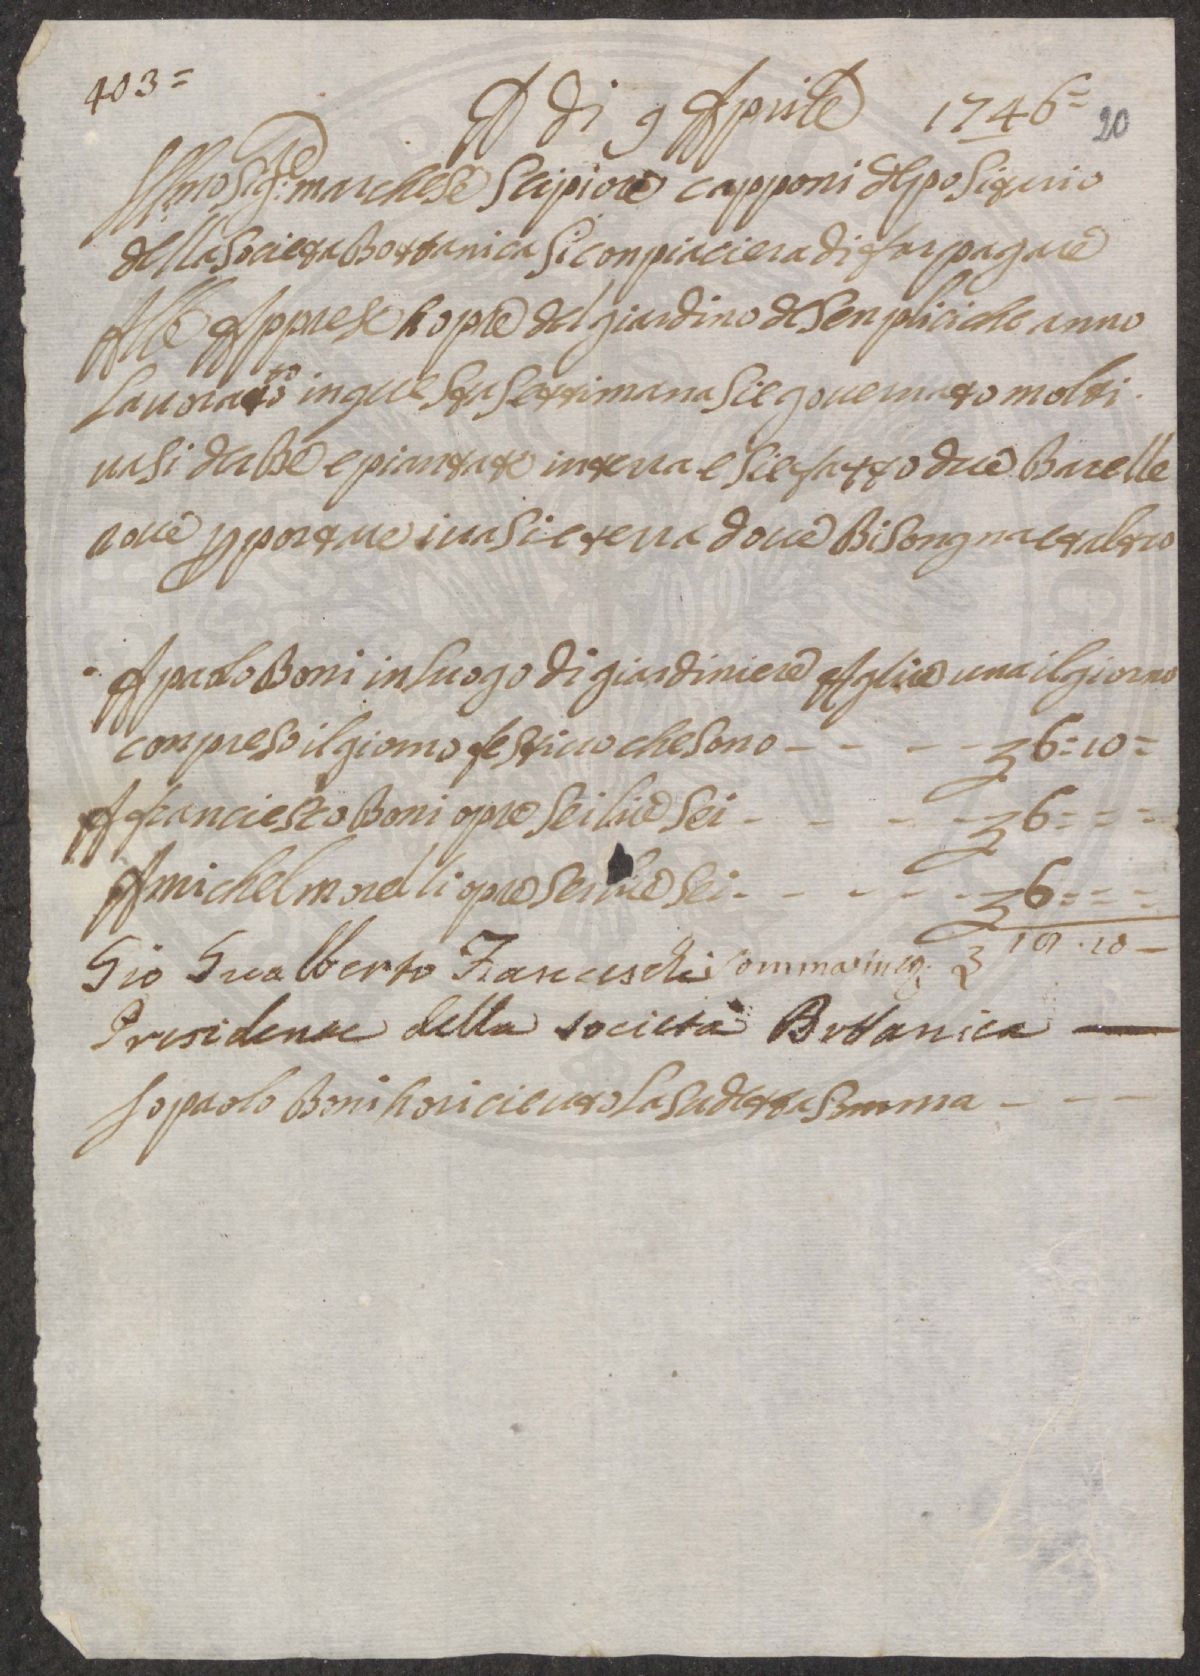 403=
A di 9 Aprile 1746=
20
Illmo Sig:re marchese Scipione capponi depositerio
della Società Bottanica Si conpiaciera di far pagare
Alle Apprese hopre del giardino de Senplici che anno
Lavorato in questa Settimana Si è governato molti
vasi derbe e piantate in terra e Si è fatto due Barelle
nove p portare i vasi e terra dove Bisongna et altro
A paolo Boni in luogo di giardiniere A lire una il giorno
conpreso il giorno festivo che Sono - - - - - 6=10=
A franciesco Boni opre Sei lire Sei - - - - - 6= = =
A michel morelli opre Sei lire Sei - - - - - 6= = =
Gio Gualberto Franceschi Somma in 18.10 —
Presidente della società Bottanica —
Io paolo Boni ho ricieuto la Sudetta Somma - - - -